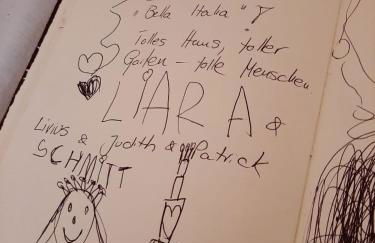 "Bella Italia"
Tolles Haus, toller
Garten - tolle Menschen
LIARA &
Livius & Judith & Patrick
SCHMITT